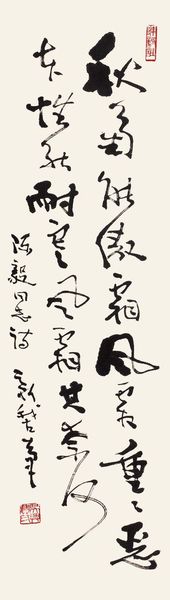 秋菊能傲霜风霜重〻恶
本性能耐寒风霜其奈何
陈毅同志诗